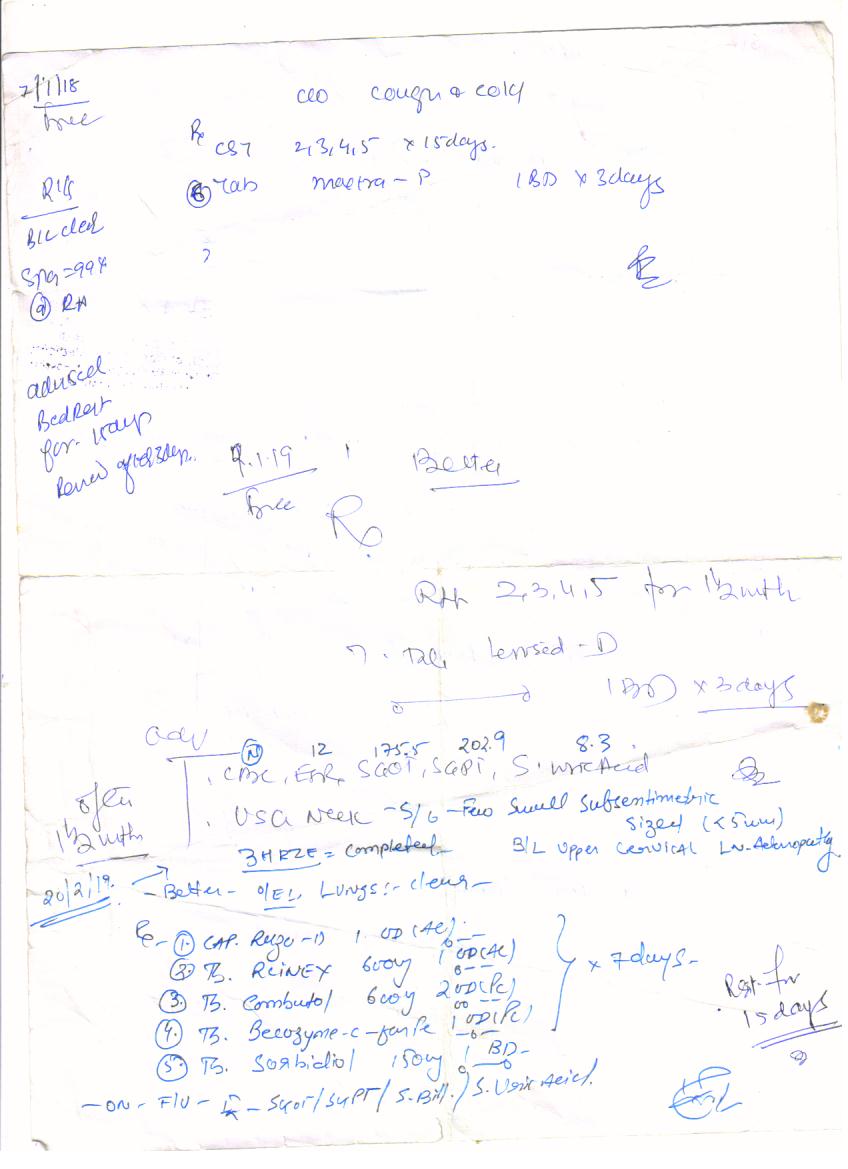 7/1/18
free
C/O cough & cold
Rx
CST 2,3,4,5 x 15days.
Tab maxtra-P 1 BD x 3days
R/S
B/L clear
SPO2 = 99%
@ RA
advised
Bed Rest
for 15days
Review after 3days.
9.1.19
free
Better
Rx
2,3,4,5 for 1½ mth
Tab
1 BD x 3days
adv
N 12 175.5 202.9 8.3
CBC, ESR, SGOT, SGPT, S. Uric Acid
USG Neck - S/O - Few small subsentimetric
sized (<5mm)
B/L upper cervical LN-Adenopathy
after
1½ mth
3HRZE = completed
20/2/19. - Better - O/E L Lungs :- clear -
Rx - 1. CAP. Rizo-D 1 OD (AC)
2. Tb. RCINEX 600mg 1 OD (AC)
3. Tb. Combutol 600mg 2 OD (PC)
4. Tb. Becozyme-c-forte 1 OD (PC)
x 7days -
5. Tb. Sorbidiol 150mg 1 BD -
Rest for
15 days
- ON - F/U - SGOT/SGPT/S.Bill./S.Uric Acid.